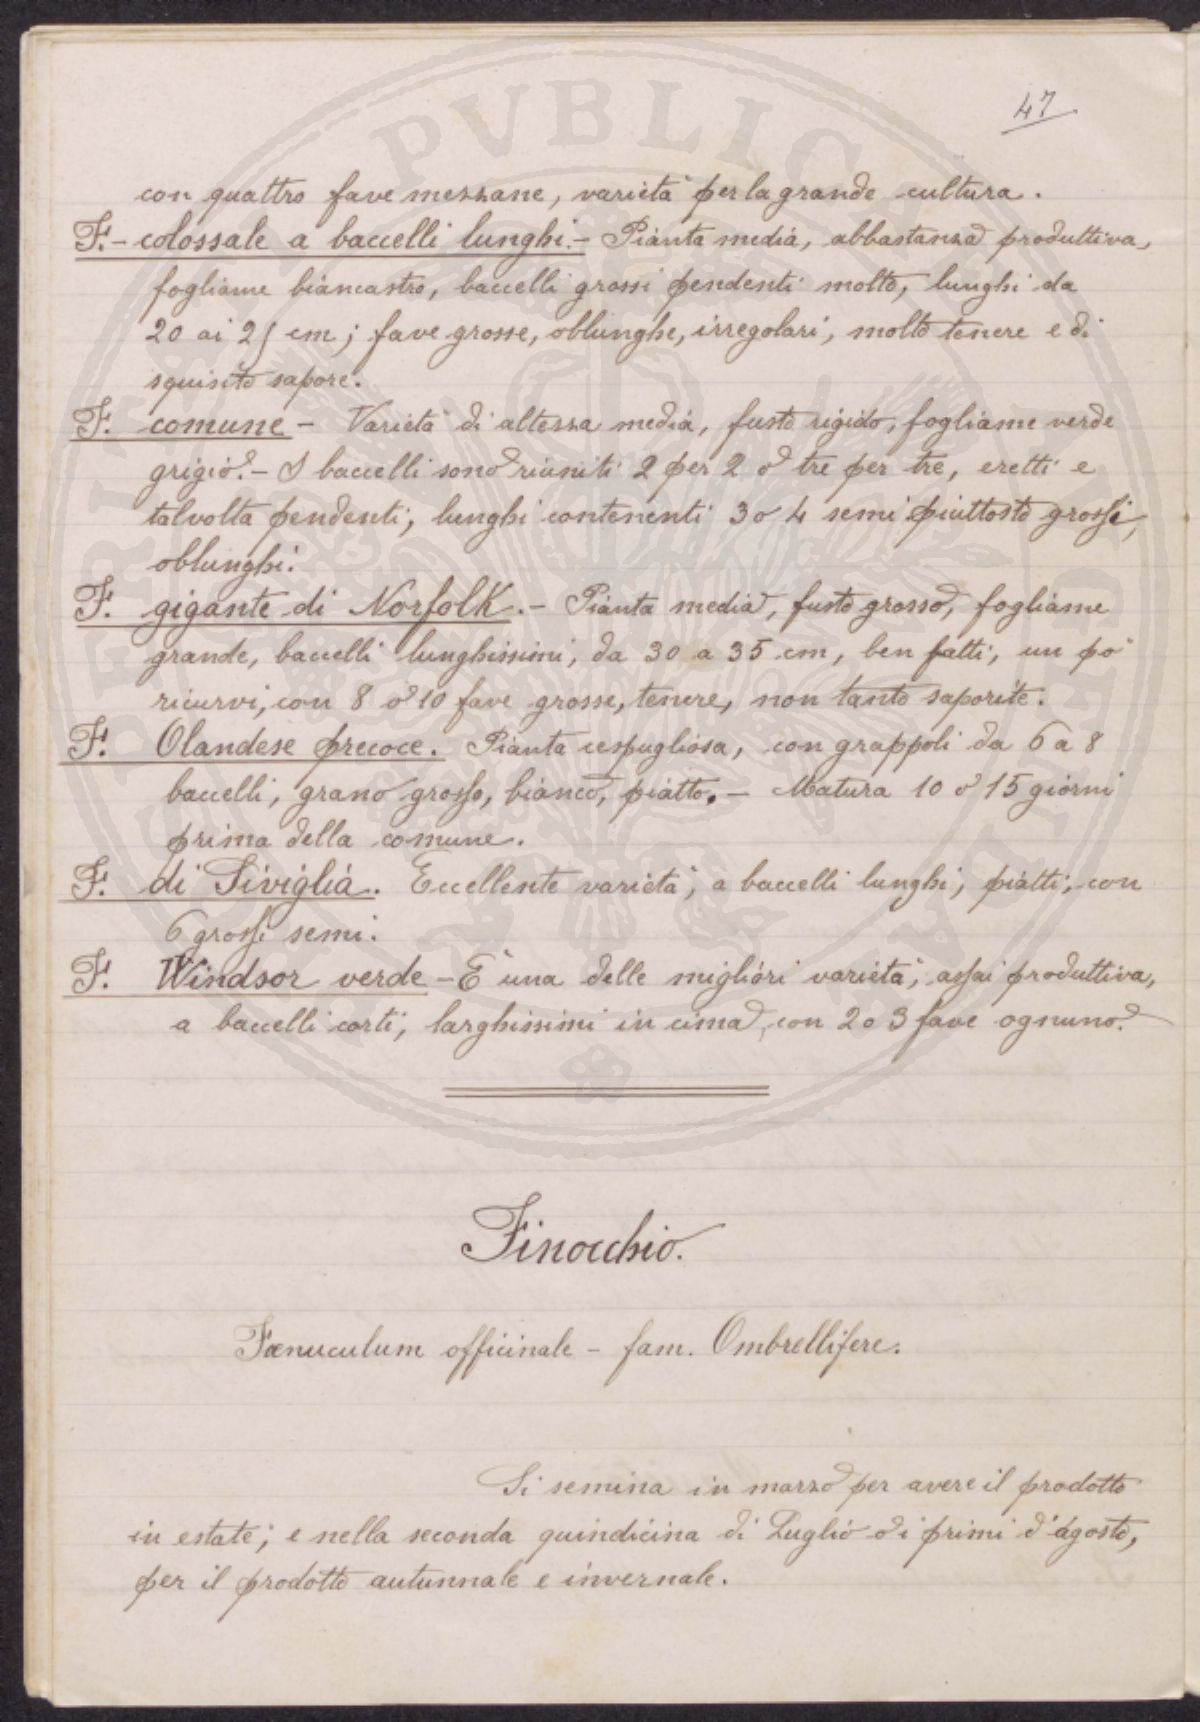 47
con quattro fave mezzane, varietà per la grande cultura.
F.- colossale a baccelli lunghi.- Pianta media, abbastanza produttiva,
fogliame biancastro, baccelli grossi pendenti molto, lunghi da
20 ai 25 cm; fave grosse, oblunghe, irregolari, molto tenere e di
squisito sapore.
F. comune - Varietà di altezza media, fusto rigido, fogliame verde
grigio.- I baccelli sono riuniti 2 per 2 o tre per tre, eretti e
talvolta pendenti, lunghi contenenti 3 o 4 semi piuttosto grossi,
oblunghi.
F. gigante di Norfolk.- Pianta media, fusto grosso, fogliame
grande, baccelli lunghissimi, da 30 a 35 cm, ben fatti, un pò
ricurvi, con 8 o 10 fave grosse, tenere, non tanto saporite.
F. Olandese precoce. Pianta cespugliosa, con grappoli da 6 a 8
baccelli, grano grosso, bianco, piatto.- Matura 10 o 15 giorni
prima della comune.
F. di Siviglia. Eccellente varietà, a baccelli lunghi, piatti, con
6 grossi semi.
F. Windsor verde - E' una delle migliori varietà, assai produttiva,
a baccelli corti, larghissimi in cima, con 2 o 3 fave ognuno.
Finocchio.
Fœnuculum officinale - fam. Ombrellifere.
Si semina in marzo per avere il prodotto
in estate; e nella seconda quindicina di Luglio o i primi d'agosto,
per il prodotto autunnale e invernale.